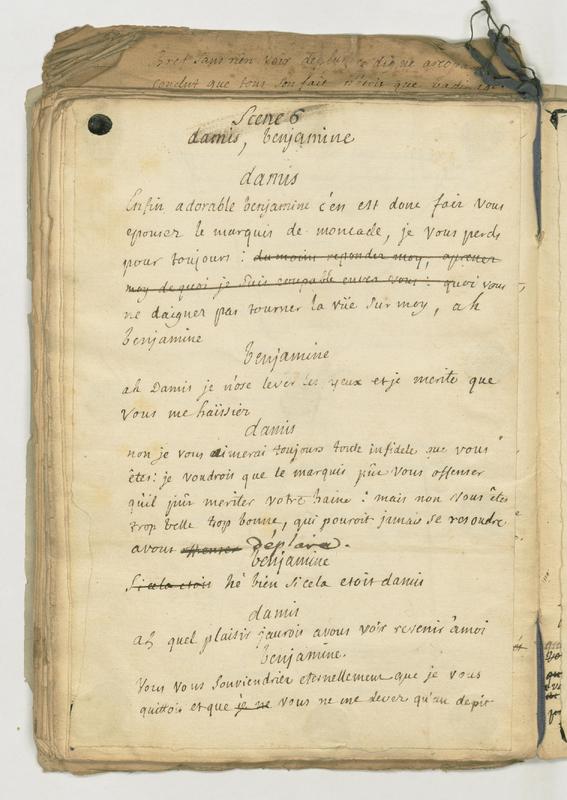 Bret sans rien voir de plus digne
conclut que tous son fait n'etoit que badinage
Scene 6
damis, benjamine
damis
Enfin adorable benjamine c'en est donc fait vous
epousez le marquis de moncade, je vous perds
pour toujours : du moins repondez moy, aprenez
moy de quoi je suis coupable envers vous : quoi vous
ne daignez pas tourner la vüe sur moy, ah
benjamine
benjamine
ah Damis je n'ose lever les yeux et je merite que
vous me haïssiez
damis
non je vous aimerai toujours toute infidele que vous
êtes: je voudrois que le marquis pûe vous offenser
qu'il pût meriter votre haine : mais non vous êtes
trop belle trop bonne, qui pouroit jamais se resoudre
avous offenser déplaire.
benjamine
Si cela etois hé bien si cela etoit damis
damis
ah quel plaisir jaurois avous voir revenir àmoi
benjamine.
Vous vous souviendriez eternellement que je vous
quittois et que je ne vous ne me devez qu'au depit